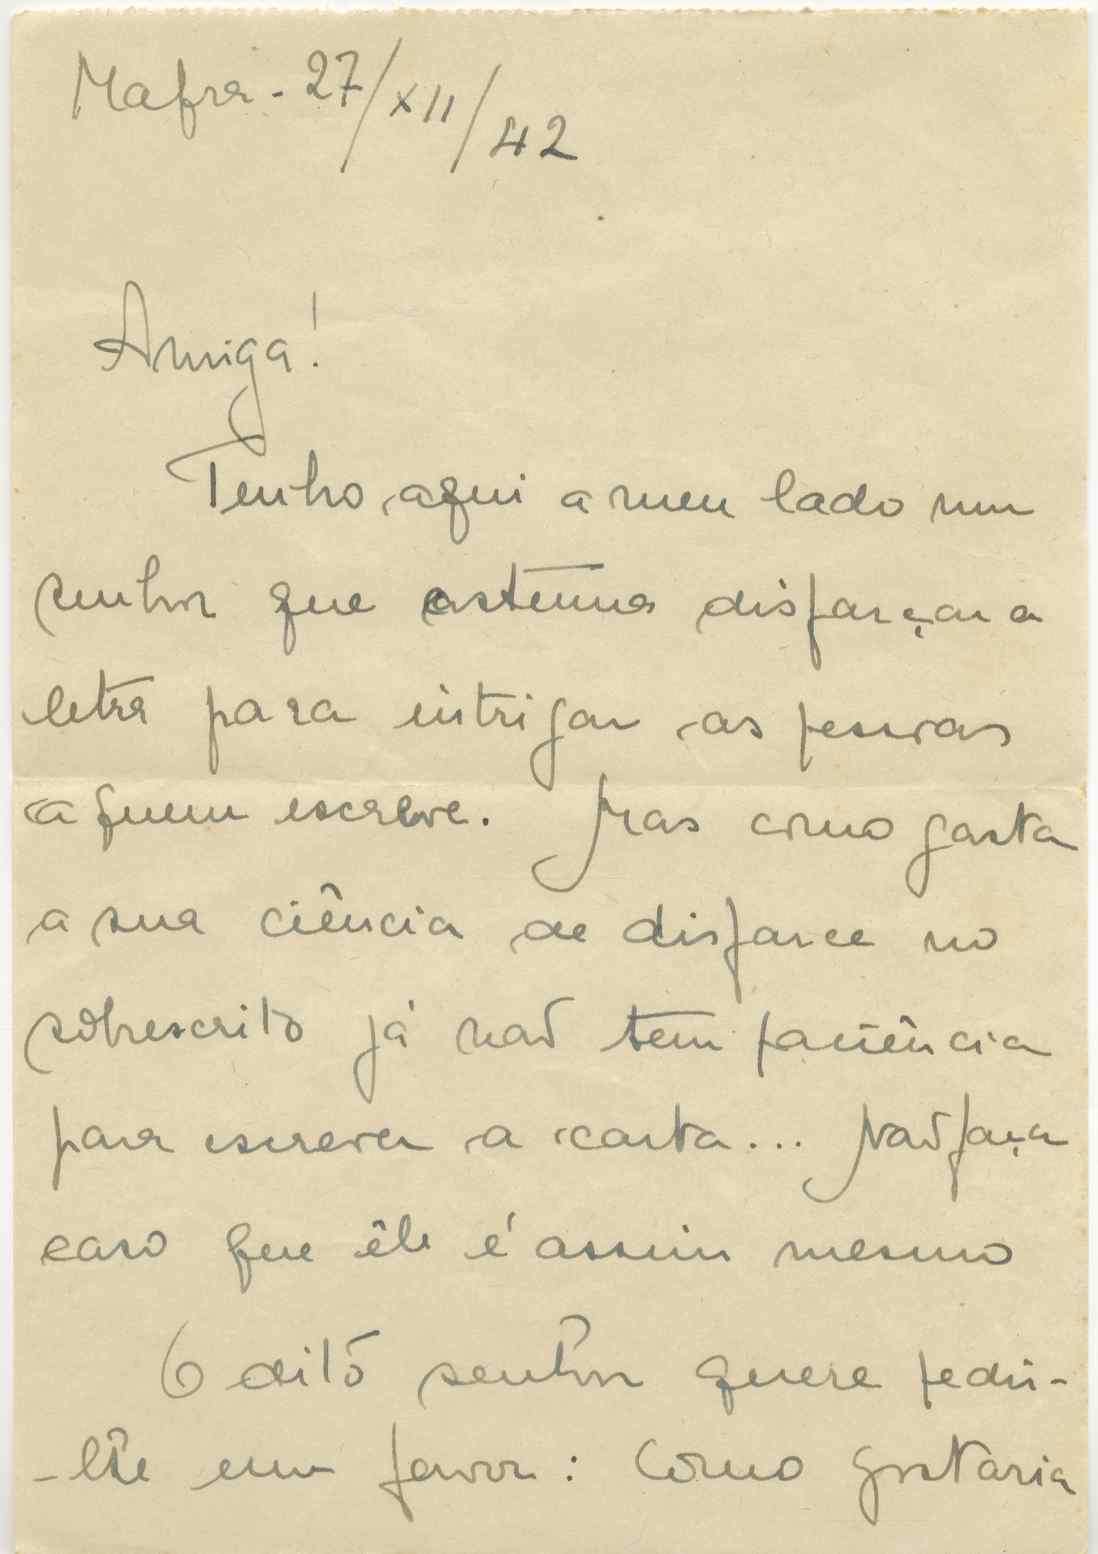 Mafra - 27/XII/42
Amiga!
Tenho aqui a meu lado um
senhor que costuma disfarçar a
letra para intrigar as pessoas
a quem escreve. Mas como gasta
a sua ciência de disfarce no
sobrescrito já não tem paciência
para escrever a carta... Não faça
caso que êle é assim mesmo
O dito senhor quere pedir-
-lhe um favor: Como gostaria